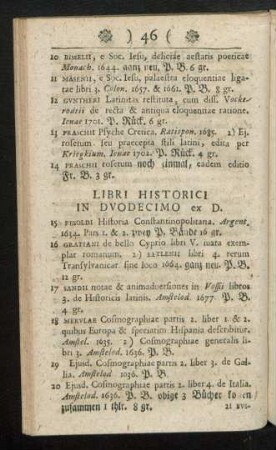 ) 46 (
10 BIMELII, e Soc. Iesu, deliciæ aestatis poeticae
Monach. 1644. ganz neu, P. B. 6 gr.
11 MASENII, e Soc. Iesu, palaestra eloquentiae liga-
tae libri 3. Colon. 1657. & 1661. P. B. 8 gr.
12 GVNTHERI Latinitas restituta, cum diss. Vocke-
rodtii de recta & antiqua eloquentiae ratione.
Ienae 1701. P. Rück. 6 gr.
13 PRASCHII Psyche Cretica, Ratispon. 1685. 2) Ej.
rosetum. seu praecepta stili latini, edita per
Kriegkium, Ienae 1702. P. Rück. 4 gr.
14 PRASCHII rosetum noch einmal, eadem editio
Fr. B. 3 gr.
LIBRI HISTORICI
IN DVODECIMO ex D.
15 FIGVLDI Historia Constantinopolitana, Argent.
1634. Pars 1. & 2. zwey P. Bände 16 gr.
16 GRATIANI de bello Cyprio libri V. iuxta exem-
plar romanum. 2) BETLENII libri 4. rerum
Transylvanicar. sine loco 1664. ganz neu. P. B.
12 gr.
17 SANDII notae & animadversiones in Vossii libros
3. de Historicis latinis. Amstelod. 1677. P. B.
4 gr.
18 MERVLAE Cosmographiae partis 2. liber 1 & 2.
quibus Europa & speciatim Hispania describitur.
Amstel. 1635. 2) Cosmographiae generalis li-
bri 3. Amstelod. 1636. P. B.
19 Ejusd. Cosmographiae partis 2. liber 3. de Gal-
lia. Amstelod. 1636. P. B.
20 Ejusd. Cosmographiae partis 2. liber 4. de Italia.
Amstelod. 1636. P. B. obige 3 Bücher kosten
zusammen 1 thlr. 8 gr.